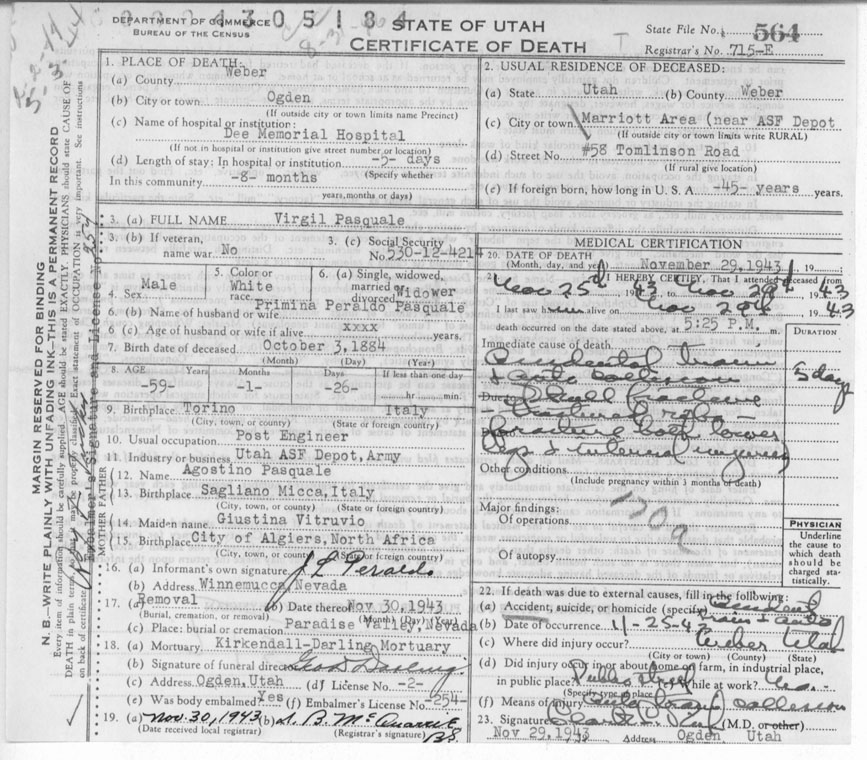 DEPARTMENT OF COMMERCE
BUREAU OF THE CENSUS
STATE OF UTAH
CERTIFICATE OF DEATH
State File No. 564
Registrar's No. 715-E
1. PLACE OF DEATH:
(a) County Weber
(b) City or town Ogden
(If outside city or town limits name Precinct)
(c) Name of hospital or institution:
Dee Memorial Hospital
(If not in hospital or institution give street number or location)
(d) Length of stay: In hospital or institution -5- days
(Specify whether
In this community -8- months
years, months or days)
2. USUAL RESIDENCE OF DECEASED:
(a) State Utah (b) County Weber
(c) City or town Marriott Area (near ASF Depot
(If outside city or town limits write RURAL)
(d) Street No. #58 Tomlinson Road
(If rural give location)
(e) If foreign born, how long in U. S. A. -45- years years.
3. (a) FULL NAME Virgil Pasquale
3. (b) If veteran, name war No
3. (c) Social Security No. 530-12-4214
4. Sex Male
5. Color or race White
6. (a) Single, widowed, married divorced Widower
6. (b) Name of husband or wife Primina Peraldo Pasquale
6. (c) Age of husband or wife if alive xxxx years.
7. Birth date of deceased October 3, 1884
(Month) (Day) (Year)
8. AGE Years Months Days If less than one day
-59- -1- -26- hr. min.
9. Birthplace Torino Italy
(City, town, or county) (State or foreign country)
10. Usual occupation Post Engineer
11. Industry or business Utah ASF Depot, Army
FATHER
12. Name Agostino Pasquale
13. Birthplace Sagliano Micca, Italy
(City, town, or county) (State or foreign country)
MOTHER
14. Maiden name Giustina Vitruvio
15. Birthplace City of Algiers, North Africa
(City, town, or county) (State or foreign country)
16. (a) Informant's own signature J L Peraldo
(b) Address Winnemucca, Nevada
17. (a) Removal (b) Date thereof Nov 30, 1943
(Burial, cremation, or removal) (Month) (Day) (Year)
(c) Place: burial or cremation Paradise Valley, Nevada
18. (a) Mortuary Kirkendall-Darling Mortuary
(b) Signature of funeral director Darling
(c) Address Ogden, Utah (d) License No. -2-
(e) Was body embalmed? Yes (f) Embalmer's License No. -254-
19. (a) Nov. 30, 1943 (b)
(Date received local registrar) (Registrar's signature)
MEDICAL CERTIFICATION
20. DATE OF DEATH
(Month, day, and year) November 29, 1943 19
I HEREBY CERTIFY, That I attended deceased from
Nov 25th 1943 to Nov 29th 1943
I last saw h alive on Nov 29th 1943
death occurred on the date stated above, at 5:25 P.M. m.
DURATION
Immediate cause of death
5 days
Other conditions
(Include pregnancy within 3 months of death)
170a
Major findings:
Of operations
Of autopsy
PHYSICIAN
Underline the cause to which death should be charged statistically.
22. If death was due to external causes, fill in the following:
(a) Accident, suicide, or homicide (specify) Accident
(b) Date of occurrence 11-25-43
(c) Where did injury occur? Weber Utah
(City or town) (County) (State)
(d) Did injury occur in or about home, on farm, in industrial place, in public place? While at work?
(Specify type of place)
(f) Means of injury
23. Signature (M.D. or other)
Nov 29, 1943 Address Ogden, Utah
MARGIN RESERVED FOR BINDING
N. B.—WRITE PLAINLY WITH UNFADING INK—THIS IS A PERMANENT RECORD
Every item of information should be carefully supplied. AGE should be stated EXACTLY. PHYSICIANS should state CAUSE OF
DEATH in plain terms, so that it may be properly classified. Exact statement of OCCUPATION is very important. See instructions
on back of certificate.
Embalmer's Signature and License No. 254